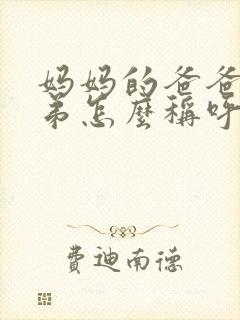 妈妈的爸爸
弟怎麼稱呼
費迪南德